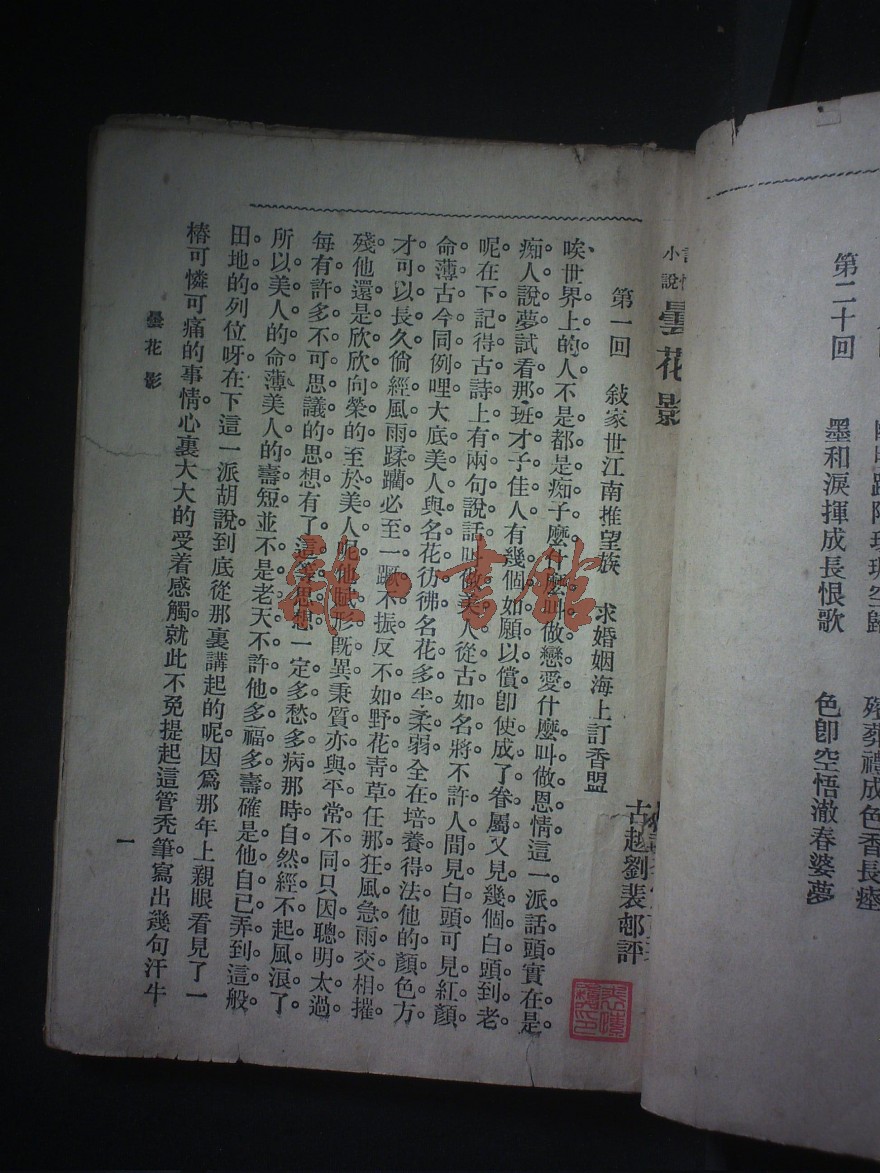 第二十回 墨和淚揮成長恨歌 色卽空悟澈春婆夢
小說
曇花影
古越劉裴邨評
第一回 敍家世江南推望族 求婚姻海上訂香盟
唉世界上的人不是都是痴子麼什麼叫做戀愛什麼叫做恩情這一派話頭實在是
痴人說夢試看那班才子佳人有幾個如願以償卽使成了眷屬又見幾個白頭到老
呢在下記得古詩上有兩句說話叫做美人從古如名將不許人間見白頭可見紅顏
命薄古今同例哩大底美人與名花彷彿名花多半柔弱全在培養得法他的顏色方
才可以長久倘經風雨蹂躪必至一蹶不振反不如野花靑草任那狂風急雨交相摧
殘他還是欣欣向榮的至於美人呢他賦形旣異秉質亦與平常不同只因聰明太過
每有許多不可思議的思想有了這等思想一定多愁多病那時自然經不起風浪了
所以美人的命薄美人的壽短並不是老天不許他多福多壽確是他自已弄到這般
田地的列位呀在下這一派胡說到底從那裏講起的呢因爲那年上親眼看見了一
樁可憐可痛的事情心裏大大的受着感觸就此不免提起這管禿筆寫出幾句汗牛
曇花影
一
雜·書館